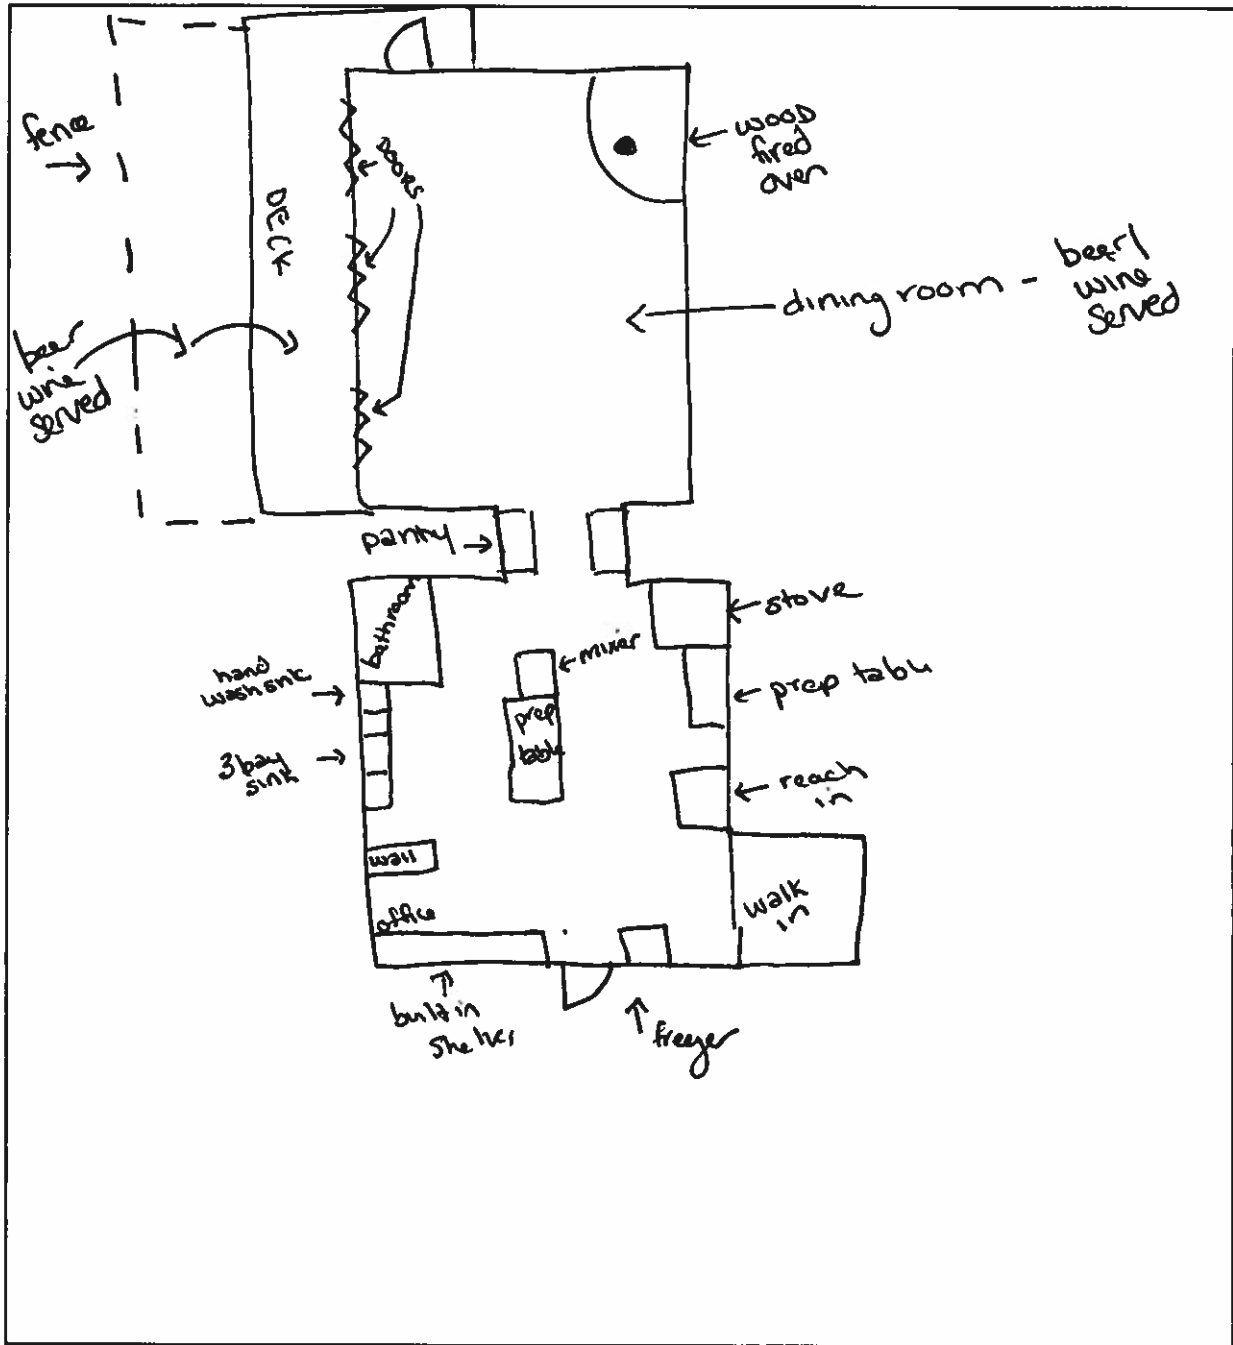 fence
DECK
DOORS
wood
fired
oven
dining room - beer/
wine
served
beer
wine
served
pantry
bathroom
stove
mixer
hand
wash sink
prep table
prep
table
3 bay
sink
reach
in
wall
walk
in
office
built in
shelves
freezer